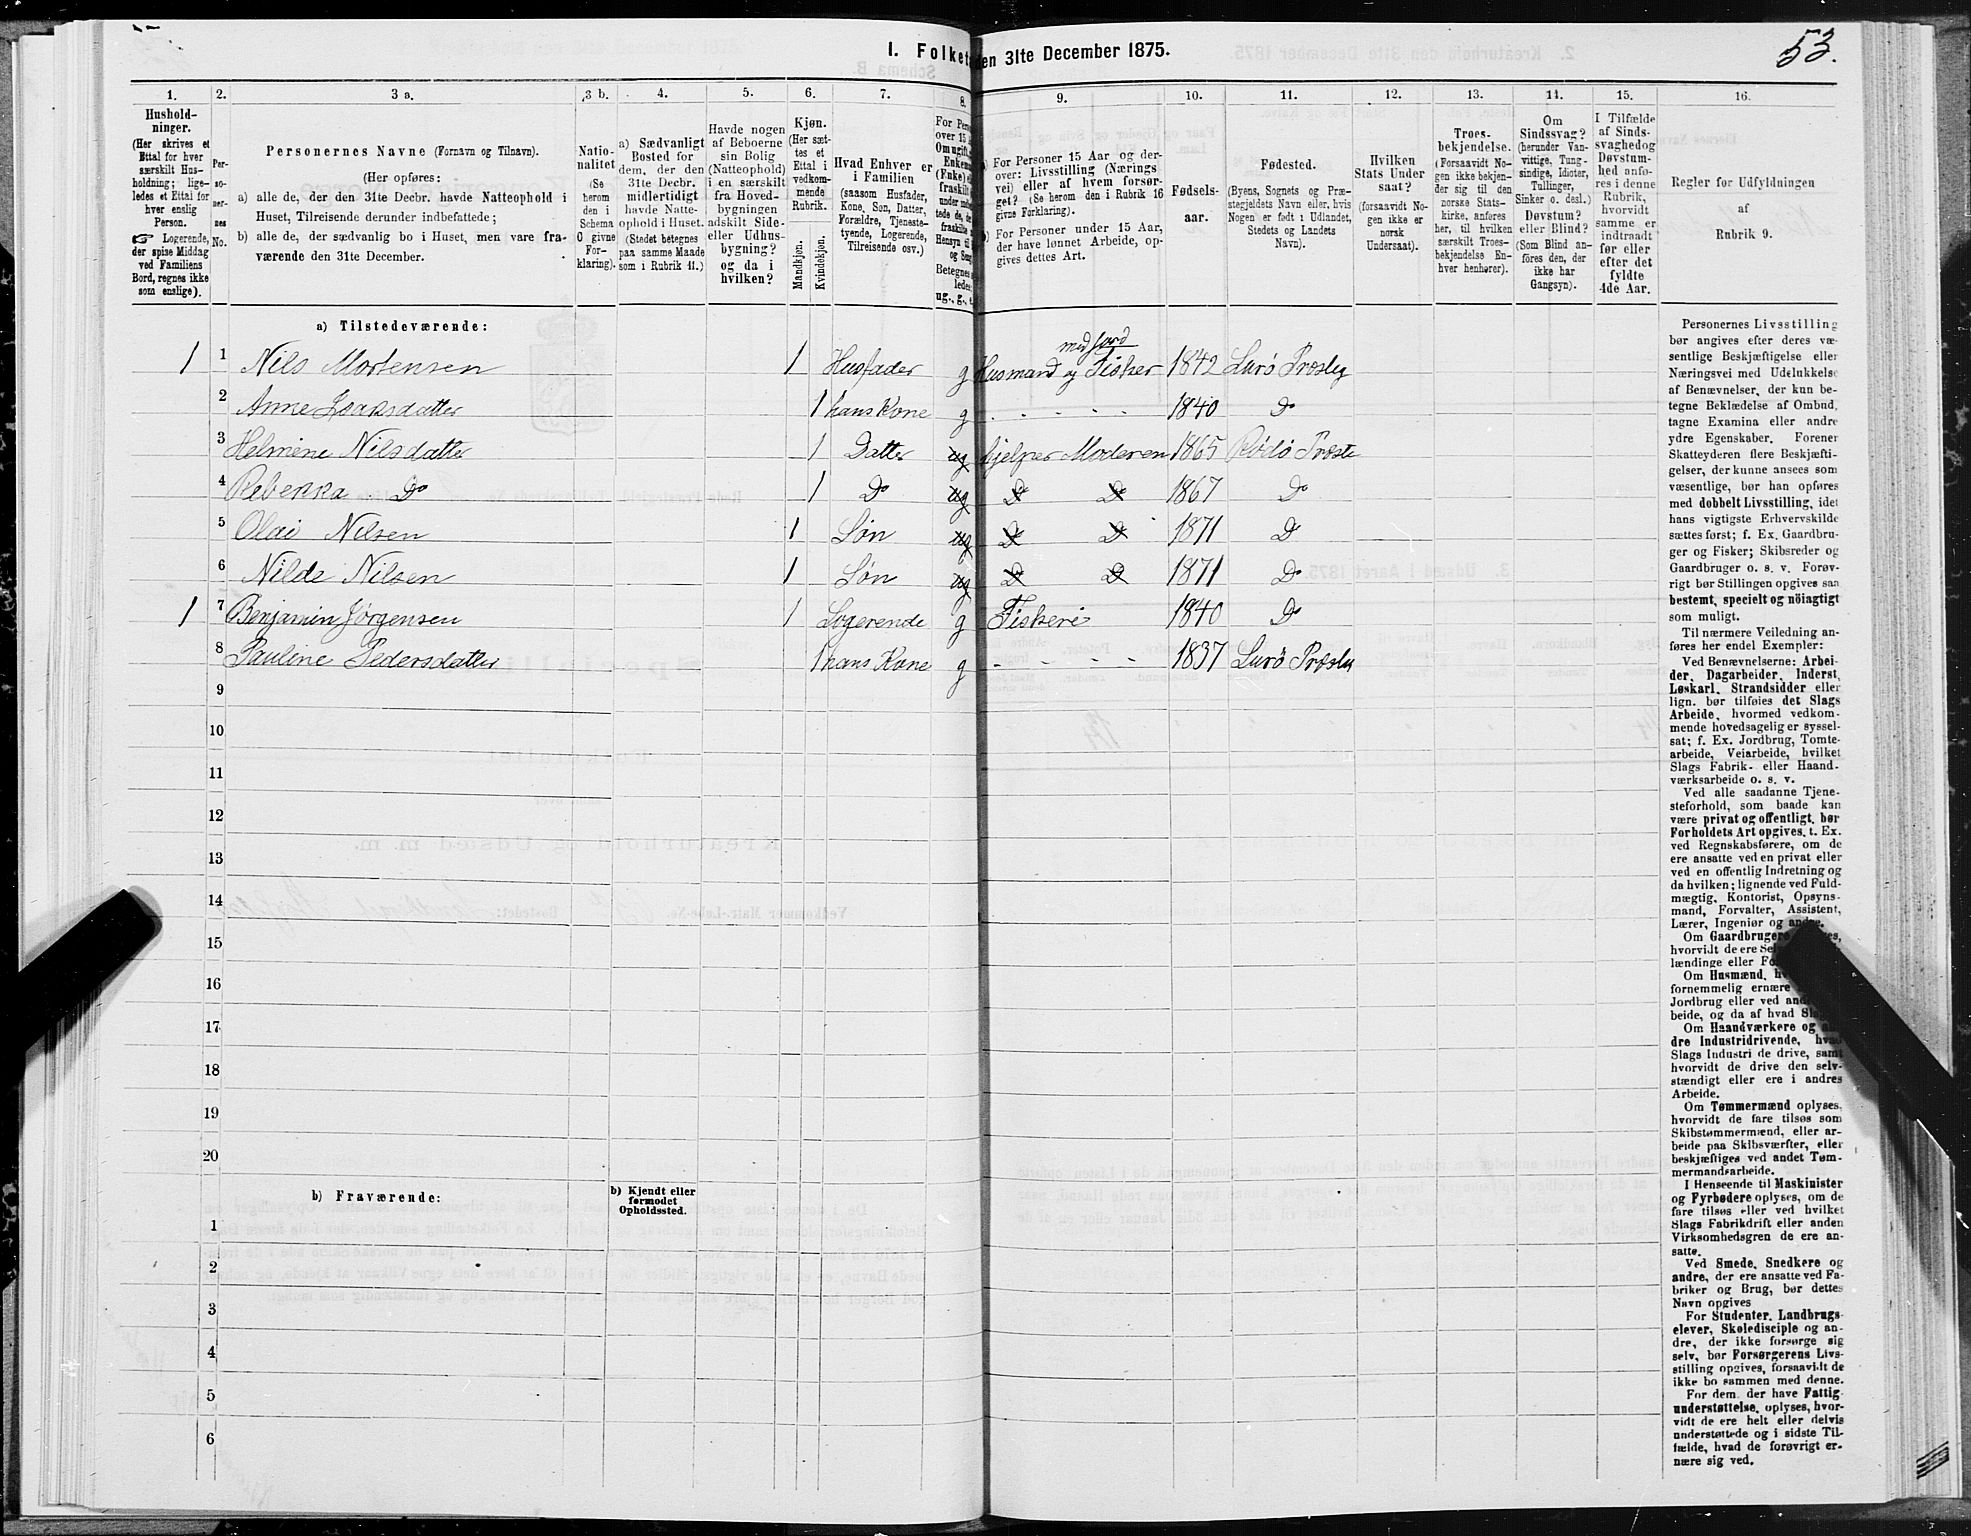 53.
I. Folket
den 31te December 1875.
1.
2.
3 a.
3 b.
4.
5.
6.
7.
8.
9.
10.
11.
12.
13.
14.
15.
16.
Hushold-
ninger.
(Her skrives et
Ettal for hver
særskilt Hus-
holdning; lige-
ledes et Ettal for
hver enslig
Person.
☞ Logerende,
der spise Middag
ved Familiens
Bord, regnes ikke
som enslige).
Per-
so-
ner-
nes
No.
Personernes Navne (Fornavn og Tilnavn).
(Her opføres:
a) alle de, der den 31te Decbr. havde Natteophold i
Huset, Tilreisende derunder indbefattede;
b) alle de, der sædvanlig bo i Huset, men vare fra-
værende den 31te December.
Natio-
nalitet
(Se
herom
den i
Schema
O givne
For-
klaring).
a) Sædvanligt
Bosted for
dem, der den
31te Decbr.
midlertidigt
havde Natte-
ophold i Huset.
(Stedet betegnes
paa samme Maade
som i Rubrik 11.)
Havde nogen
af Beboerne
sin Bolig
(Natteophold)
i en særskilt
fra Hoved-
bygningen
adskilt Side-
eller Udhus-
bygning?
og da i
hvilken?
Kjøn.
(Her sæt-
tes et
Ettal i
vedkom-
mende
Rubrik.
Mandkjøn.
Kvindekjøn.
Hvad Enhver er
i Familien
(saasom Husfader,
Kone, Søn, Datter,
Forældre, Tjeneste-
tyende, Logerende,
Tilreisende osv.)
For Pers
over 15
Om ugift,
Enkem
(Enke)
fraskilt
Betegnes
ledes
ug., g., e.
a) For Personer 15 Aar og der-
over: Livsstilling (Nærings
vei) eller af hvem forsør-
get? (Se herom den i Rubrik 16
givne Forklaring).
b) For Personer under 15 Aar,
der have lønnet Arbeide, op-
gives dettes Art.
Fødsels-
aar.
Fødested.
(Byens, Sognets og Præ-
stegjeldets Navn eller, hvis
Nogen er født i Udlandet,
Stedets og Landets
Navn).
Hvilken
Stats Under
saat?
(forsaavidt No-
gen ikke er
norsk
Undersaat).
Troes-
bekjendelse.
(Forsaavidt No-
gen ikke bekjen-
der sig til den
norske Stats-
kirke, anføres
her, til hvilken
særskilt Troes-
bekjendelse En-
hver henhører).
Om
Sindssvag?
(herunder Van-
vittige, Tung-
sindige, Idioter,
Tullinger,
Sinker o. desl.)
Døvstum?
eller Blind?
(Som Blind an-
føres den, der
ikke har
Gangsyn).
I Tilfælde
af Sinds-
svaghed og
Døvstum-
hed anfø-
res i denne
Rubrik,
hvorvidt
samme er
indtraadt
før eller
efter det
fyldte
4de Aar.
Regler for Udfyldningen
af
Rubrik 9.
a) Tilstedeværende:
med jord
1 1 Nils Mortensen 1 Husfader g Husmand og Fisker 1842 Lurø Præstg
2 Anne Isaksdatter 1 hans Kone g - - - - - 1840 Do
3 Helmine Nilsdatter 1 Datter ug hjelper Moderen 1865 Rødø Præste
4 Rebekka Do 1 Do ug D D 1867 Do
5 Olai Nilsen 1 Søn ug D D 1871 Do
6 Nilde Nilsen 1 Søn ug D D 1871 Do
1 7 Benjamin Jørgensen 1 Logerende g Fiskeri 1840 Do
8 Pauline Pedersdatter 1 hans Kone g - - - - 1837 Lurø Præstg
9
10
11
12
13
14
15
16
17
18
19
20
b) Fraværende:
b) Kjendt eller
formodet
Opholdssted.
1
2
3
4
5
6
Personernes Livsstilling
bør angives efter deres væ-
sentlige Beskjæftigelse eller
Næringsvei med Udelukkelse
af Benævnelser, der kun be-
tegne Beklædelse af Ombud,
tagne Examina eller andre
ydre Egenskaber. Forener
Skatteyderen flere Beskjæfti-
gelser, der kunne ansees som
væsentlige, bør han opføres
med dobbelt Livsstilling, idet
hans vigtigste Erhvervskilde
sættes først; f. Ex. Gaardbru-
ger og Fisker; Skibsreder og
Gaardbruger o. s. v. Forøv-
rigt bør Stillingen opgives saa
bestemt, specielt og nøiagtigt
som muligt.
Til nærmere Veiledning an-
føres her endel Exempler:
Ved Benævnelserne: Arbei-
der, Dagarbeider, Inderst,
Løskarl, Strandsidder eller
lign. bør tilføies det Slags
Arbeide, hvormed vedkom-
mende hovedsagelig er syssel-
sat; f. Ex. Jordbrug, Tomte-
arbeide, Veiarbeide, hvilket
Slags Fabrik- eller Haand-
værksarbeide o. s. v.
Ved alle saadanne Tjene-
steforhold, som baade kan
være privat og offentligt, bør
Forholdets Art opgives, t. Ex.
ved Regnskabsførere, om de
ere ansatte ved en privat eller
ved en offentlig Indretning og
da hvilken; lignende ved Fuld-
mægtig, Kontorist, Opsyns-
mand, Forvalter, Assistent,
Lærer, Ingeniør og andre.
Om Gaardbrugere
hvorvidt de ere
lændinge eller
Om Husmænd,
fornemmelig ernære
Jordbrug eller ved
beide, og da af hvad
Om Haandværkere og
dre Industridrivende, hvad
Slags Industri de drive, samt
hvorvidt de drive den selv-
stændigt eller ere i andres
Arbeide.
Om Tømmermænd oplyses,
hvorvidt de fare tilsøs som
Skibstømmermænd, eller ar-
beide paa Skibsværfter, eller
beskjæftiges ved andet Tøm-
mermandsarbeide.
I Henseende til Maskinister
og Fyrbødere oplyses, om de
fare tilsøs eller ved hvilket
Slags Fabrikdrift eller anden
Virksomhedsgren de ere an-
satte.
Ved Smede, Snedkere og
andre, der ere ansatte ved Fa-
briker og Brug, bør dettes
Navn opgives
For Studenter, Landbrugs-
elever, Skoledisciple og an-
dre, der ikke forsørge sig
selv, bør Forsørgerens Livs-
stilling opgives, forsaavidt de
ikke bo sammen med denne.
For dem, der have Fattig
understøttelse, oplyses, hvor-
vidt de ere helt eller delvis
understøttede og i sidste Til-
fælde, hvad de forøvrigt er-
nære sig ved.